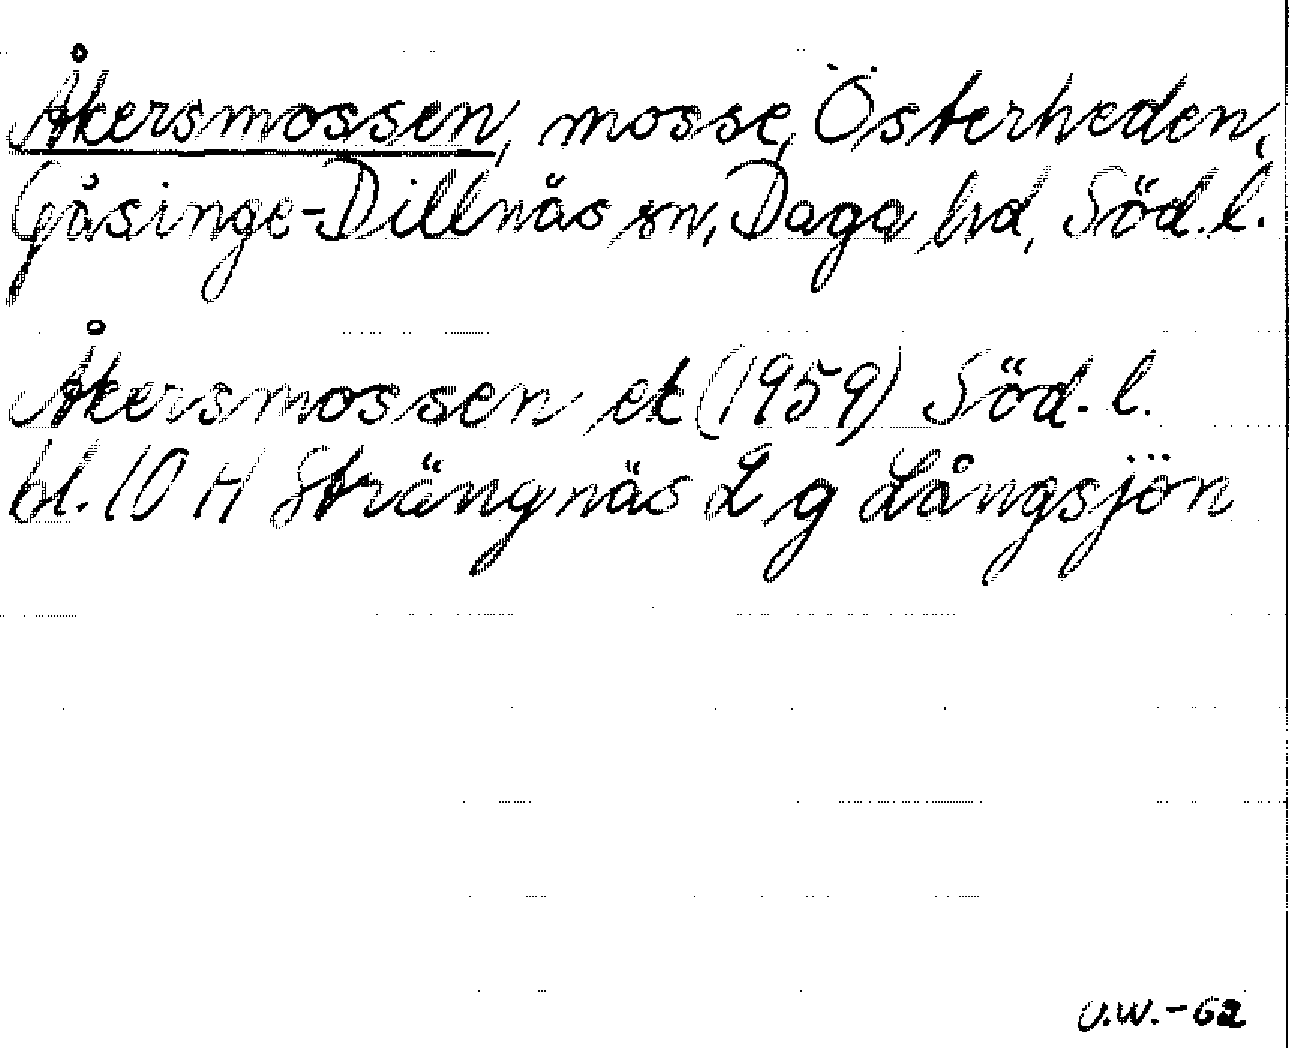 Åkersmossen, mosse, Österheden,
Gåsinge-Dillnäs sn, Daga hd, Söd. l.
Åkersmossen ek (1959) Söd. l.
bl. 10 H Strängnäs L g Långsjön
U.W. - 62